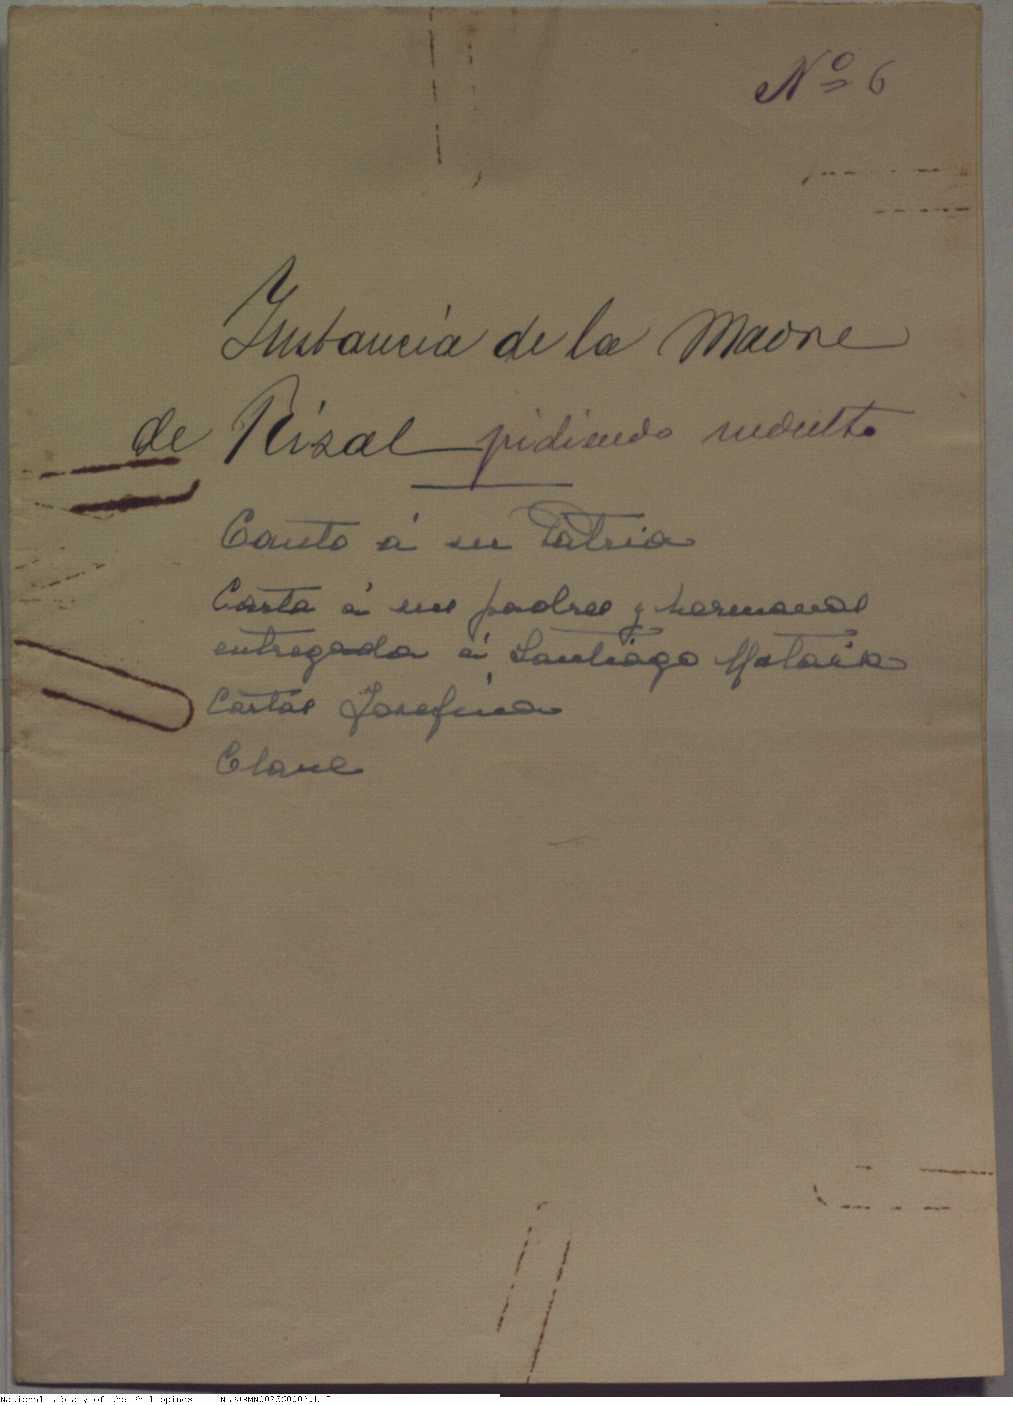 Nº 6
Instancia de la Madre
de Rizal pidiendo indulto
Canto á su Patria
Carta á sus padres y hermanos
entregada á Santiago Mataix
Cartas Josefina
Clave
National Library of the Philippines